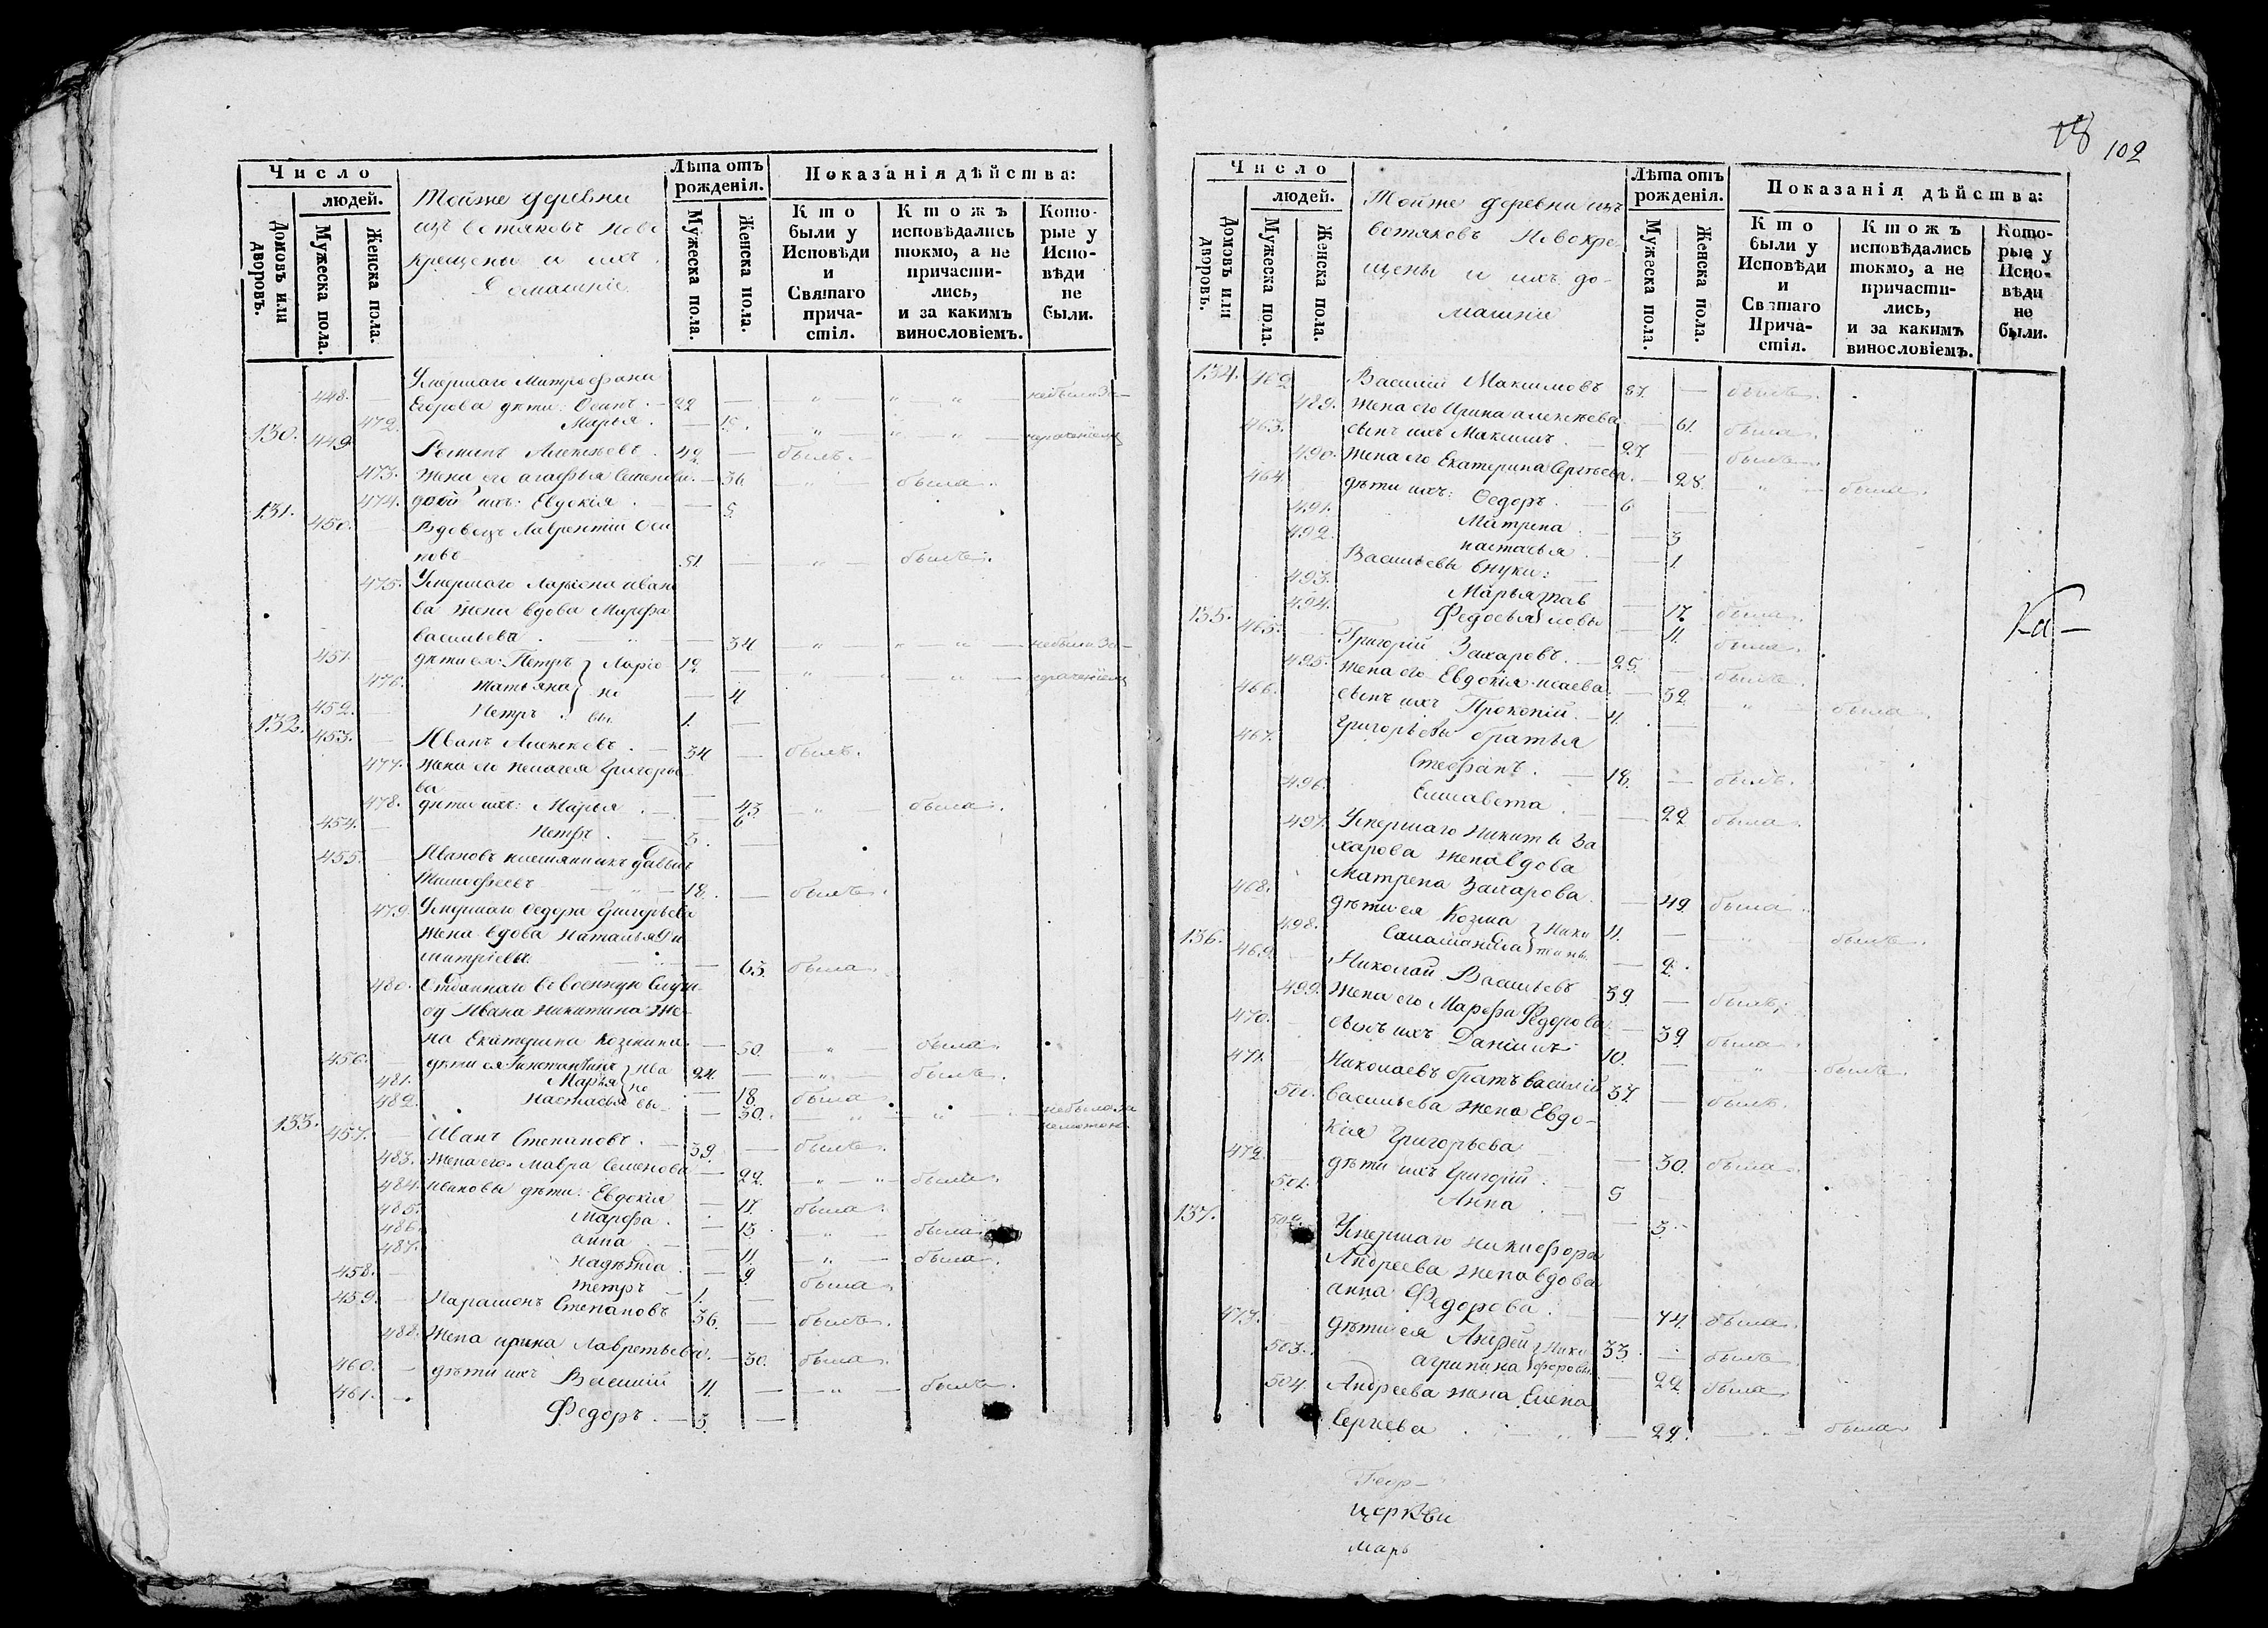 102
Число
людей.
Домовъ или дворовъ.
Мужеска пола.
Женска пола.
Тойже деревни
изъ вотяковъ ново
крещены и ихъ
Домашніе
Лѣта отъ рожденія.
Мужеска пола.
Женска пола.
Показанія дѣйства:
Кто были у Исповѣди и Святаго причастія.
Ктожъ исповѣдались токмо, а не причастились, и за какимъ винословіемъ.
Которые у Исповѣди не были.
448. — Умершаго Митрофана
Егорова дѣти: Осипъ. — 22 —
472. Марья. — 15.
130. 449 Романъ Алексѣевъ. 42 — былъ.
473. Жена его агафья Семенова. — 36 — была.
474. дочь ихъ: Евдокія. — 5
131. 450. — Вдовецъ Лаврентій Оси
повъ 51. — былъ.
475. Умершаго Ларіона ивано
ва жена вдова Марфа
васильева. — 34 —
451. дѣти ея: Петръ } Ларіо 12 —
476. Татьяна } но — 4
452. — Петръ. } вы. 1. —
132. 453. — Иванъ Алексѣевъ. — 34 — былъ.
477. жена его пелагея Григорье
ва — 43 — была.
478. дѣти ихъ: Марья. — 6
454. — Петръ. — 3. —
455. — Ивановъ племянникъ давыдъ
Тимофеевъ — 18. — былъ.
479. Умершаго Ѳедора Григорьева
жена вдова наталья Ди
митріева — 65. была.
480. Отданнаго въ военную служ
бу Ивана никитина же-
на Екатерина Козмина. — 50. — была.
456. — дѣти ея: Константинъ } Ива 24. — былъ.
481. Марья } но — 18. была
482. Настасья вы — 30.
133. 457. — Иванъ Степановъ. — 39. — былъ.
483. Жена его мавра Семенова — 22. — была.
484. ивановы дѣти: Евдокія — 17. была.
485. Марфа. — 13. — была.
486. анна. — 11. — была.
487. надѣжда. — 9. была.
458. — петръ — 1. —
459. — Парамонъ Степановъ 36. — былъ.
488. Жена ирина Лаврентьева. — 30. была.
460. — дѣти ихъ Василій 11. — былъ.
461. — Федоръ. — 3. —
Число
людей.
Домовъ или дворовъ.
Мужеска пола.
Женска пола.
Тойже деревни изъ
вотяковъ Новокре-
щены и ихъ до-
машніи
Лѣта отъ рожденія.
Мужеска пола.
Женска пола.
Показанія дѣйства:
Кто были у Исповѣди и Святаго Причастія.
Ктожъ исповѣдались токмо, а не причастились, и за какимъ винословіемъ.
Которые у Исповѣди не были.
134. 462 Василій Максимовъ 57. — былъ.
489. Жена его Ирина алексѣева — 61. была.
463. сынъ ихъ Максимъ. — 27. — былъ.
490. Жена его Екатерина Сергѣева. — 28. — была.
464 дѣти ихъ: Ѳедоръ. — 6 —
491. Матрена. — 3
492. настасья. — 1.
Васильевы внуки:
493. Марья } пав — 17. была.
494. Федосья } ловы — 11. была.
135. 465. Григорій Захаровъ. — 25. — былъ.
495. жена его Евдокія исаева. — 32. — была.
466. сынъ ихъ Прокопій. — 4. —
Григорьевы братья
467. Стефанъ. — 18. — былъ.
496. Елисавета. — 22 была.
497. Умершаго никиты За
харова жена вдова
Матрена Захарова. — 49 была.
468. дѣти ея Козма } Ники 11. — былъ.
498. } тины — 9.
136. 469. Николай Васильевъ 39. — былъ.
499. жена его Марфа Федорова. — 39. была.
470. сынъ ихъ Даніилъ 10. — былъ.
471. Николаевъ братъ василій 37. — былъ.
500. васильева жена Евдо-
кія Григорьева — 30. была.
472. дѣти ихъ Григорій. — 5 —
501. Анна. — 3.
137. 502. Умершаго никифора
Андреева жена вдова
анна Федорова. — 74. была.
473. дѣти ея Андрей } Ники 33. — былъ
503. агрипина } форовы. — 22. была.
504 Андреева жена Елена
Сергѣева. — 29. — была.
Геор-
церкви